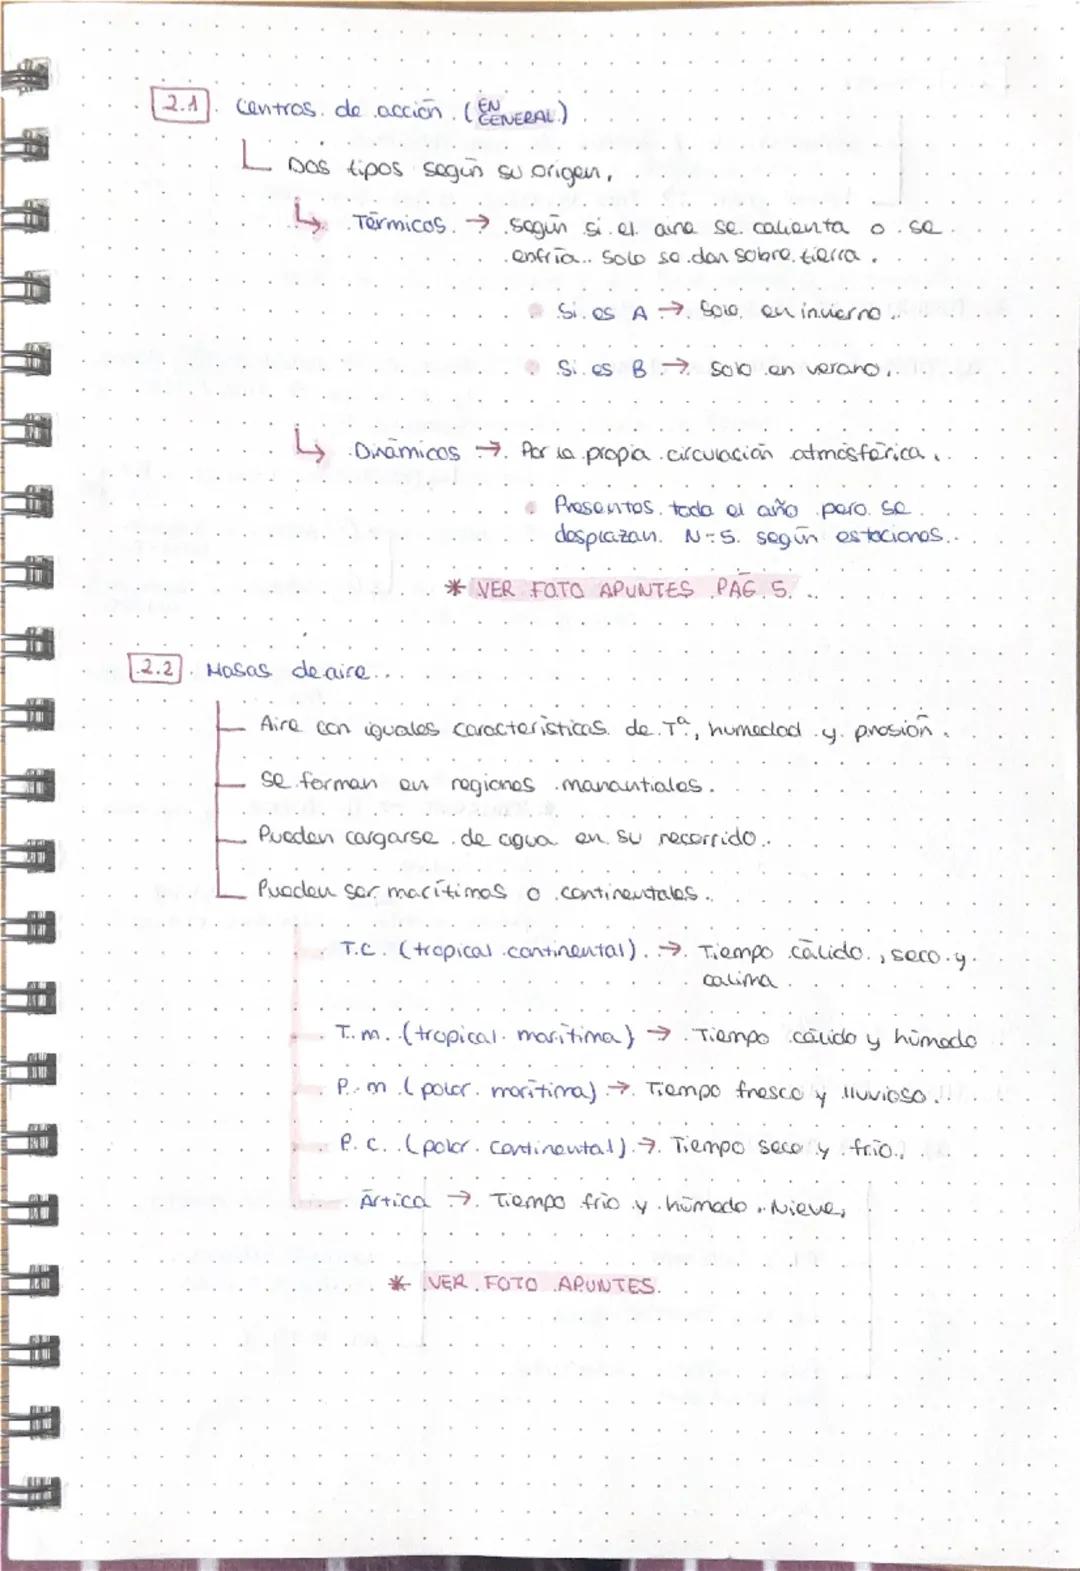 2.1 Centros de acción (EN GENERAL)
Dos tipos según su origen.
Térmicos → según si el aire se calienta o se
enfría. Solo se dan sobre tierra.
Si es A → Solo en invierno.
Si es B → Solo en verano.
Dinámicos → Por la propia circulación atmosférica.
Presentes todo el año pero se
desplazan N-S según estaciones.
* VER FOTO APUNTES PÁG 5.
2.2 Masas de aire.
Aire con iguales características de Tª, humedad y presión.
Se forman en regiones manantiales.
Pueden cargarse de agua en su recorrido.
Pueden ser marítimas o continentales.
T.C. (tropical continental) → Tiempo cálido, seco y
calima.
T.m. (tropical marítima) → Tiempo cálido y húmedo
P.m (polar marítima) → Tiempo fresco y lluvioso.
P.C. (polar continental) → Tiempo seco y frío.
Ártica → Tiempo frío y húmedo. Nieve.
* VER FOTO APUNTES.